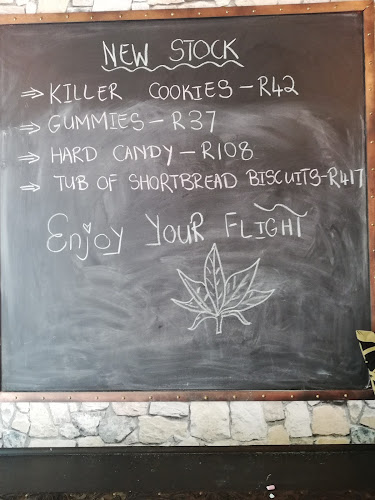 NEW STOCK
⇒ KILLER COOKIES - R42
⇒ GUMMIES - R37
⇒ HARD CANDY - R108
⇒ TUB OF SHORTBREAD BISCUITS - R417
Enjoy YOUR FLIGHT